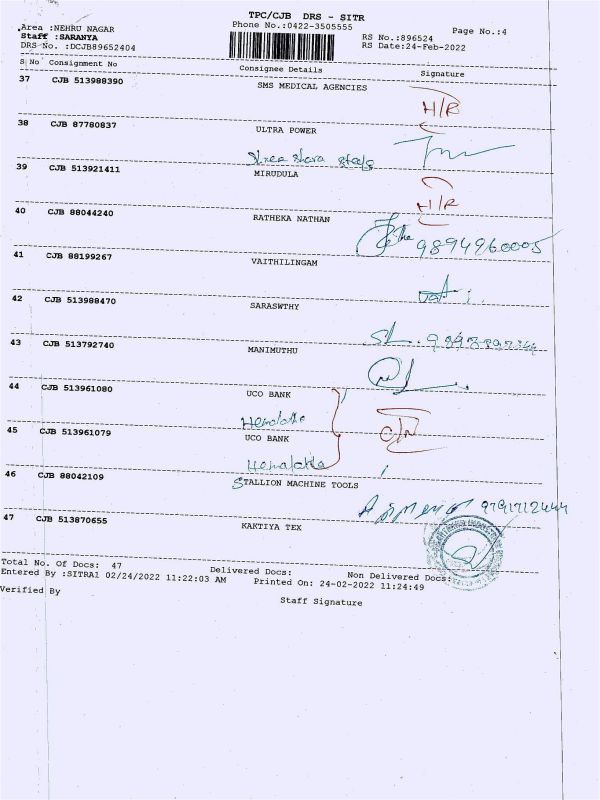 TPC/CJB DRS - SITR
Area :NEHRU NAGAR Phone No.:0422-3505555 Page No.:4
Staff :SARANYA RS No.:896524
DRS No. :DCJB89652404 RS Date:24-Feb-2022
S No Consignment No Consignee Details Signature
37 CJB 513988390 SMS MEDICAL AGENCIES
H/R
38 CJB 87780837 ULTRA POWER
39 CJB 513921411 MIRUDULA
H/R
40 CJB 88044240 RATHEKA NATHAN
9894960005
41 CJB 88199267 VAITHILINGAM
42 CJB 513988470 SARASWTHY
43 CJB 513792740 MANIMUTHU
44 CJB 513961080 UCO BANK
Hemalatha
45 CJB 513961079 UCO BANK
Hemalatha
46 CJB 88042109 STALLION MACHINE TOOLS
9791712444
47 CJB 513870655 KAKTIYA TEX
Total No. Of Docs: 47 Delivered Docs: Non Delivered Docs:
Entered By :SITRA1 02/24/2022 11:22:03 AM Printed On: 24-02-2022 11:24:49
Verified By Staff Signature